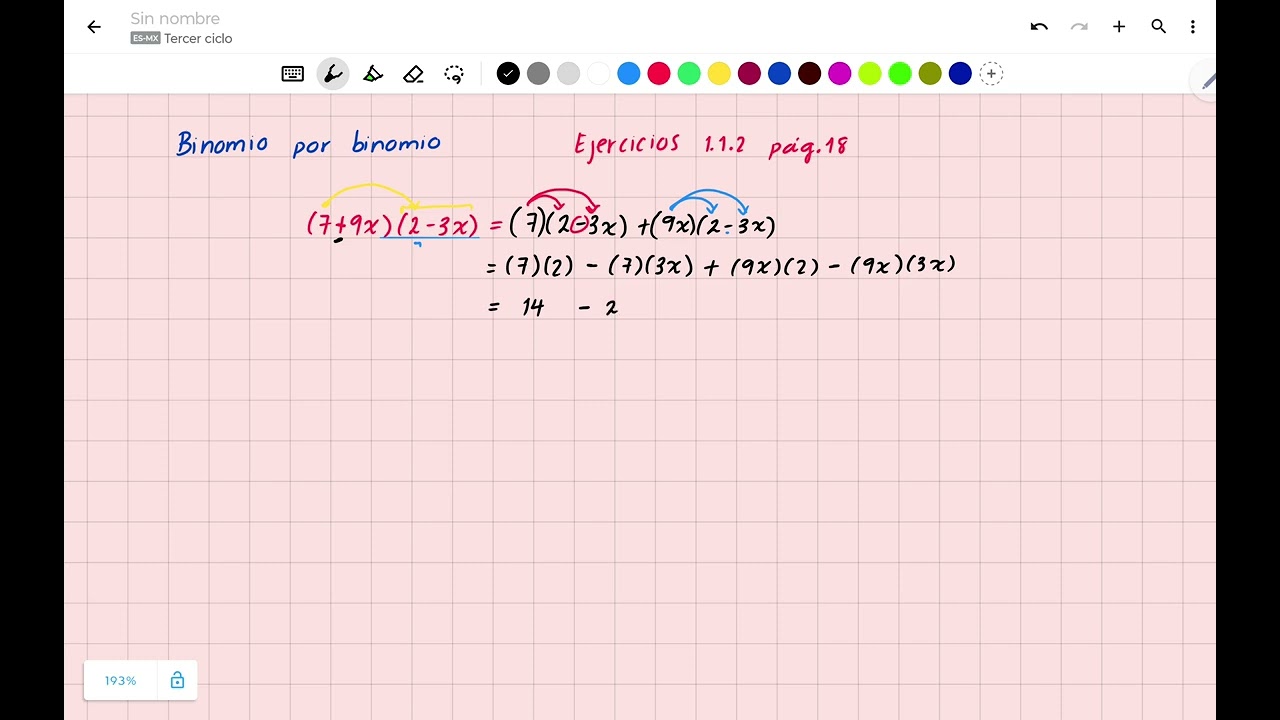 Sin nombre
ES-MX Tercer ciclo
Binomio por binomio Ejercicios 1.1.2 pág.18
(7+9x)(2-3x) = (7)(2-3x) +(9x)(2-3x)
= (7)(2) - (7)(3x) + (9x)(2) - (9x)(3x)
= 14 - 2
193%